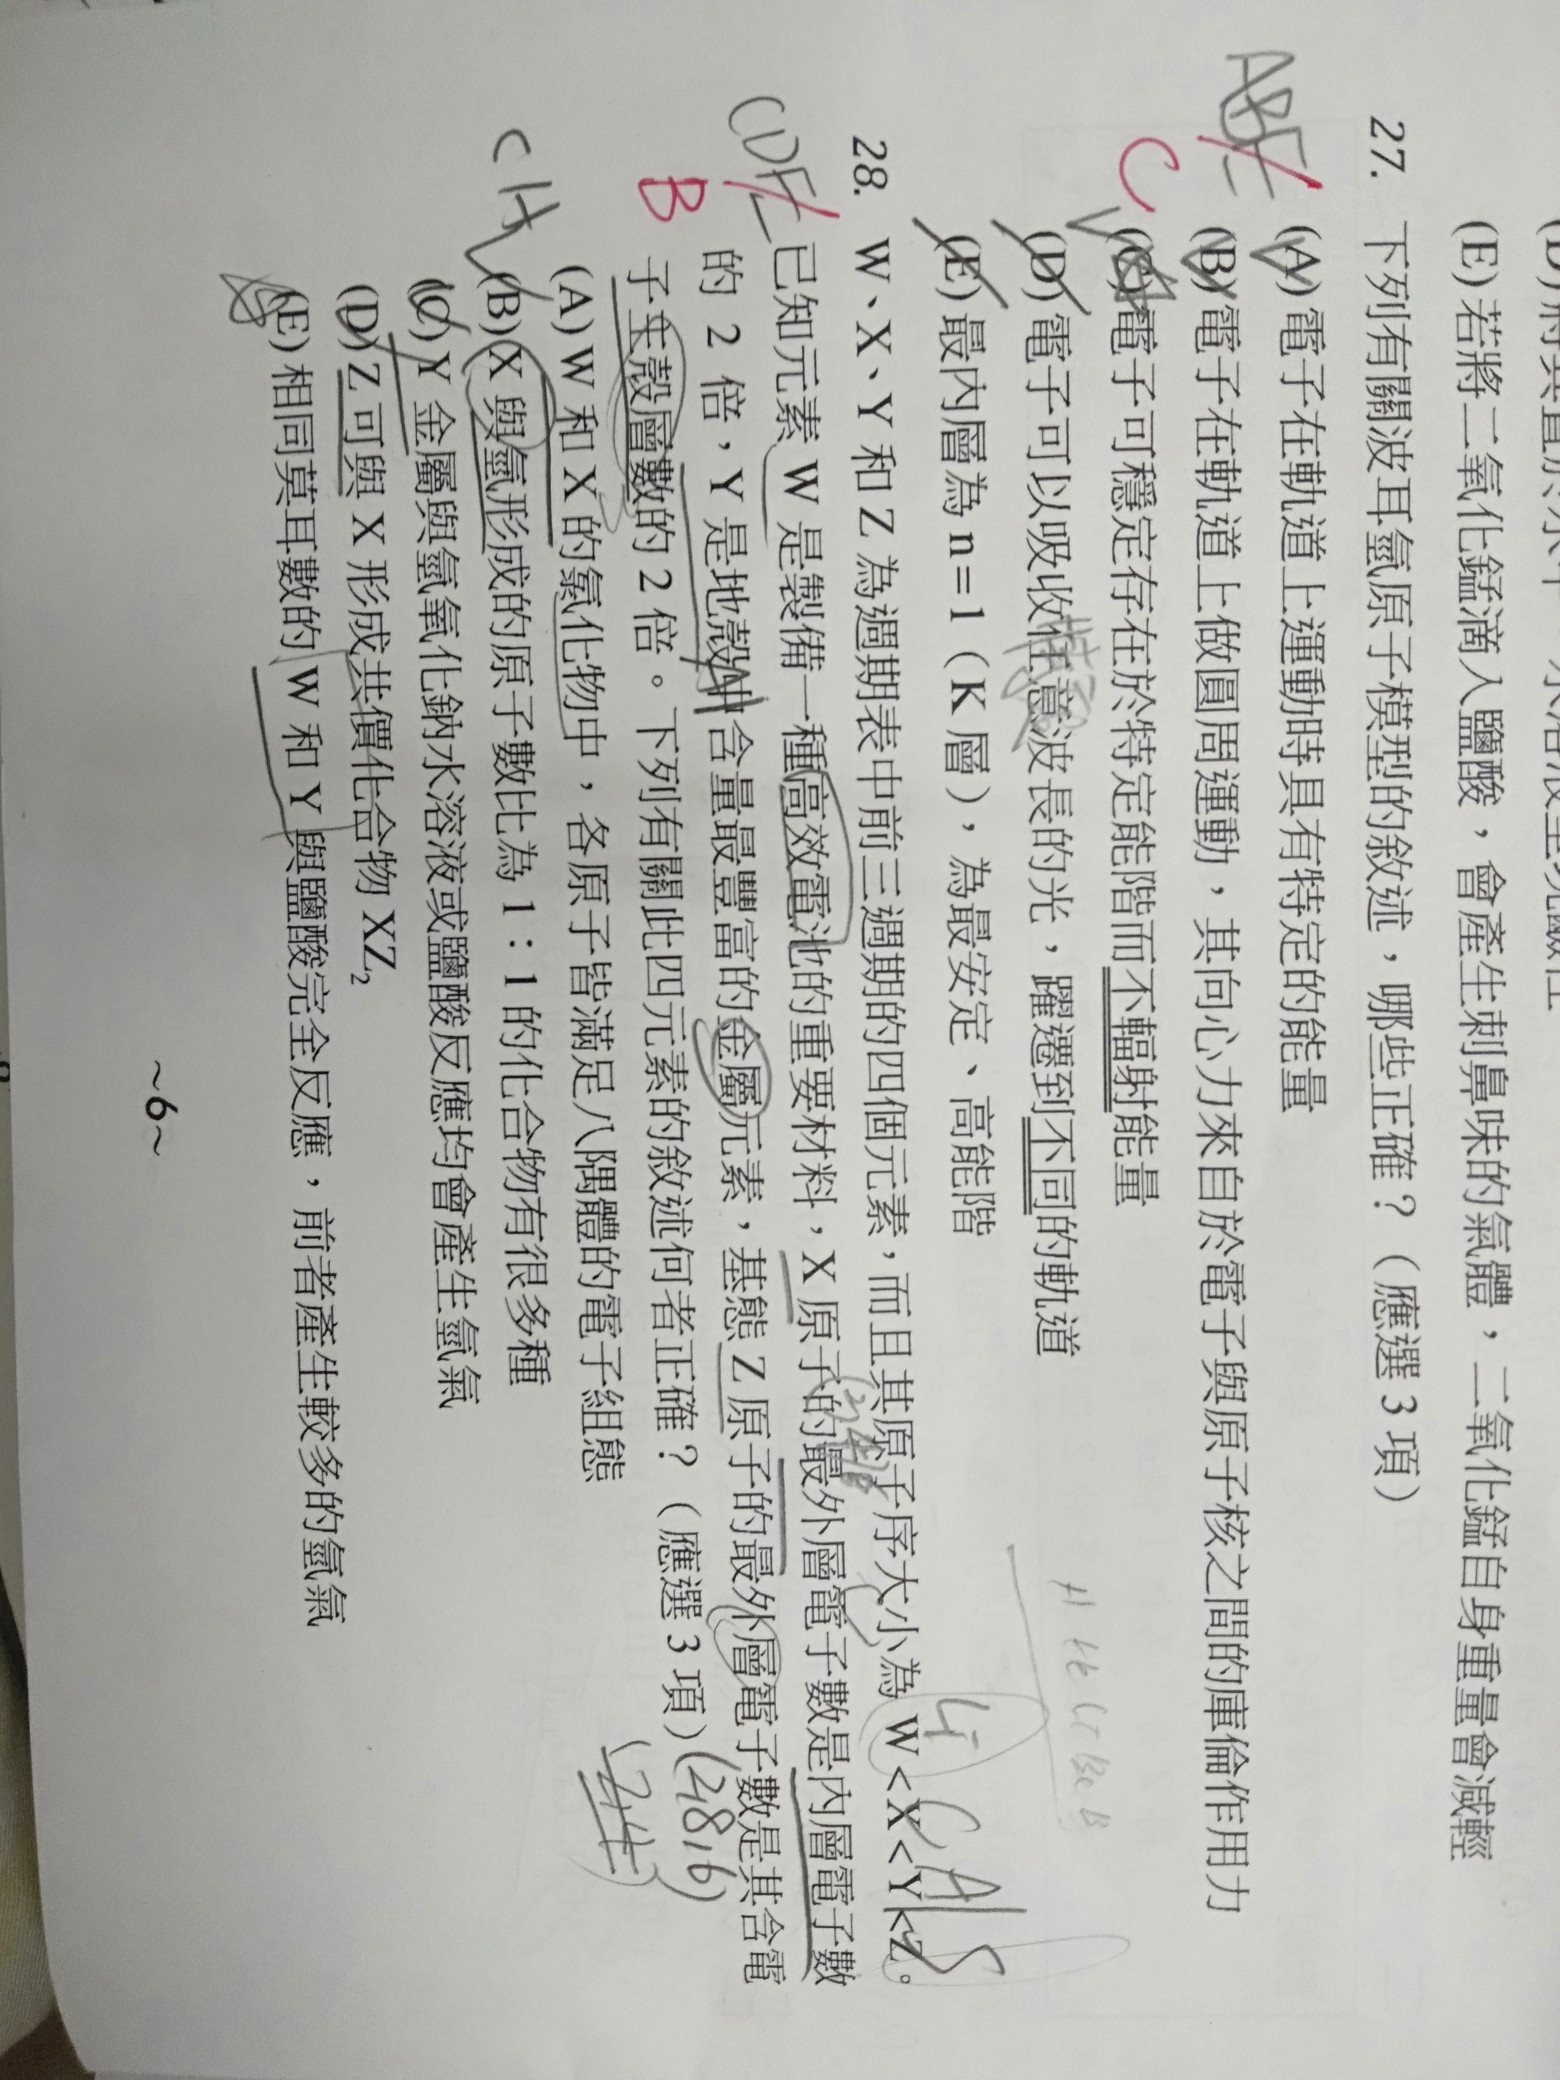 (E) 若將二氧化錳滴入鹽酸，會產生刺鼻味的氣體，二氧化錳自身重量會減輕
27. 下列有關波耳氫原子模型的敘述，哪些正確？（應選 3 項）
ABE
C
(A) 電子在軌道上運動時具有特定的能量
(B) 電子在軌道上做圓周運動，其向心力來自於電子與原子核之間的庫倫作用力
(C) 電子可穩定存在於特定能階而不輻射能量
(D) 電子可以吸收任意波長的光，躍遷到不同的軌道
(E) 最內層為 n=1（K 層），為最安定、高能階
H He Li Be B
Li C Al S
28. W、X、Y 和 Z 為週期表中前三週期的四個元素，而且其原子序大小為 W<X<Y<Z。
CDE
B
已知元素 W 是製備一種高效電池的重要材料，X 原子的最外層電子數是內層電子數
(2,4)
的 2 倍，Y 是地殼中含量最豐富的金屬元素，基態 Z 原子的最外層電子數是其含電
Al
子主殼層數的 2 倍。下列有關此四元素的敘述何者正確？（應選 3 項）
(2,8,6)
(A) W 和 X 的氯化物中，各原子皆滿足八隅體的電子組態
CH
(B) X 與氫形成的原子數比為 1：1 的化合物有很多種
(C) Y 金屬與氫氧化鈉水溶液或鹽酸反應均會產生氫氣
(D) Z 可與 X 形成共價化合物 XZ₂
(E) 相同莫耳數的 W 和 Y 與鹽酸完全反應，前者產生較多的氫氣
~6~